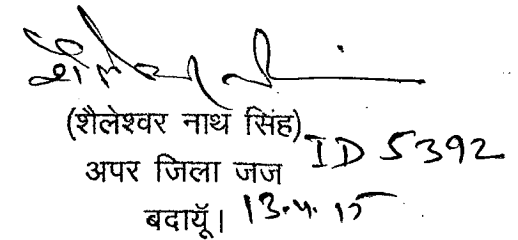 (शैलेश्वर नाथ सिंह) ID 5392
अपर जिला जज
बदायूॅ। 13.4.15